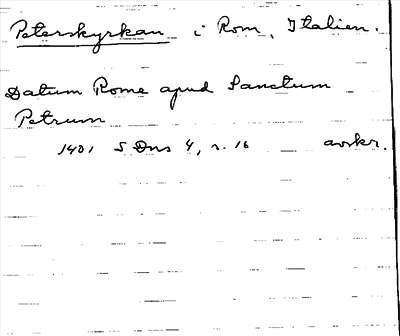 Peterskyrkan i Rom, Italien.
Datum Rome apud Sanctum
Petrum
1401 S Dns 4, s. 16 avskr.